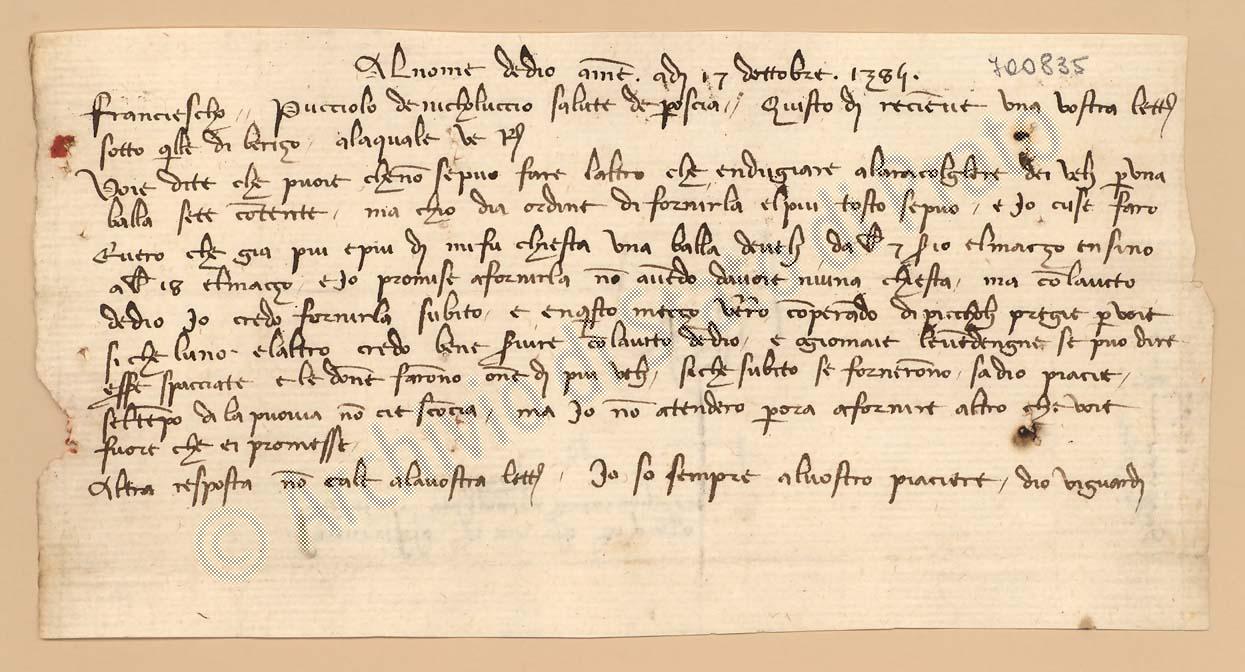 Al nome de dio amē. adi 17 dottobre. 1384.
700835
Franciescho, Pucciolo de nicholuccio salute de peroscia, Quisto di recieuue una vostra letta
sotto qlle di berizo, alaquale ve Rdo
Voie dite che puoie chenō sepuo fare laltro che endugiare alaracolghere dei veli p una
balla sete cōtente, ma chio dia ordine di fornirla elpiu tosto sepuo, e Io cuse faro
Euero che gia piu epiu di mi fu chiesta una balla develi da lb 7 elmazzo ensino
a lb 18 elmazo, e Io promise afornirla nō auēdo dauoie niuna chiesta, ma cō laiuto
dedio Io credo fornirla subito, e enqsto mezzo verrò cōperādo di piccholi pregie p voie
si che luno elaltro credo bene fornire cō laiuto dedio, e ogiomaie leuēdengne se puo dire
esse spacciate e le dōne farōno one di piu veli, siche subito se fornerōno, sa dio piacie,
seltēpo da la piouia nō cie scōcia, ma Io nō atendero p ora afornire altro che voie
fuore che ei promesse,
Altra resposta nō cale alauostra letta, Io so sempre al vostro piaciere, dio viguardi
© Archivio di Stato di Prato